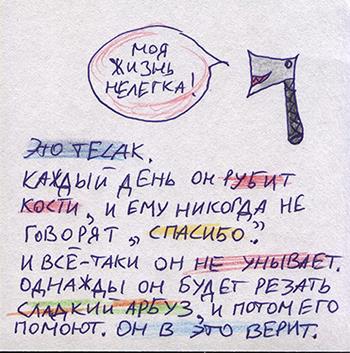 МОЯ
ЖИЗНЬ
НЕЛЕГКА!
ЭТО ТЕСАК.
КАЖДЫЙ ДЕНЬ ОН РУБИТ
КОСТИ, И ЕМУ НИКОГДА НЕ
ГОВОРЯТ „СПАСИБО."
И ВСЁ-ТАКИ ОН НЕ УНЫВАЕТ.
ОДНАЖДЫ ОН БУДЕТ РЕЗАТЬ
СЛАДКИЙ АРБУЗ, И ПОТОМ ЕГО
ПОМОЮТ. ОН В ЭТО ВЕРИТ.